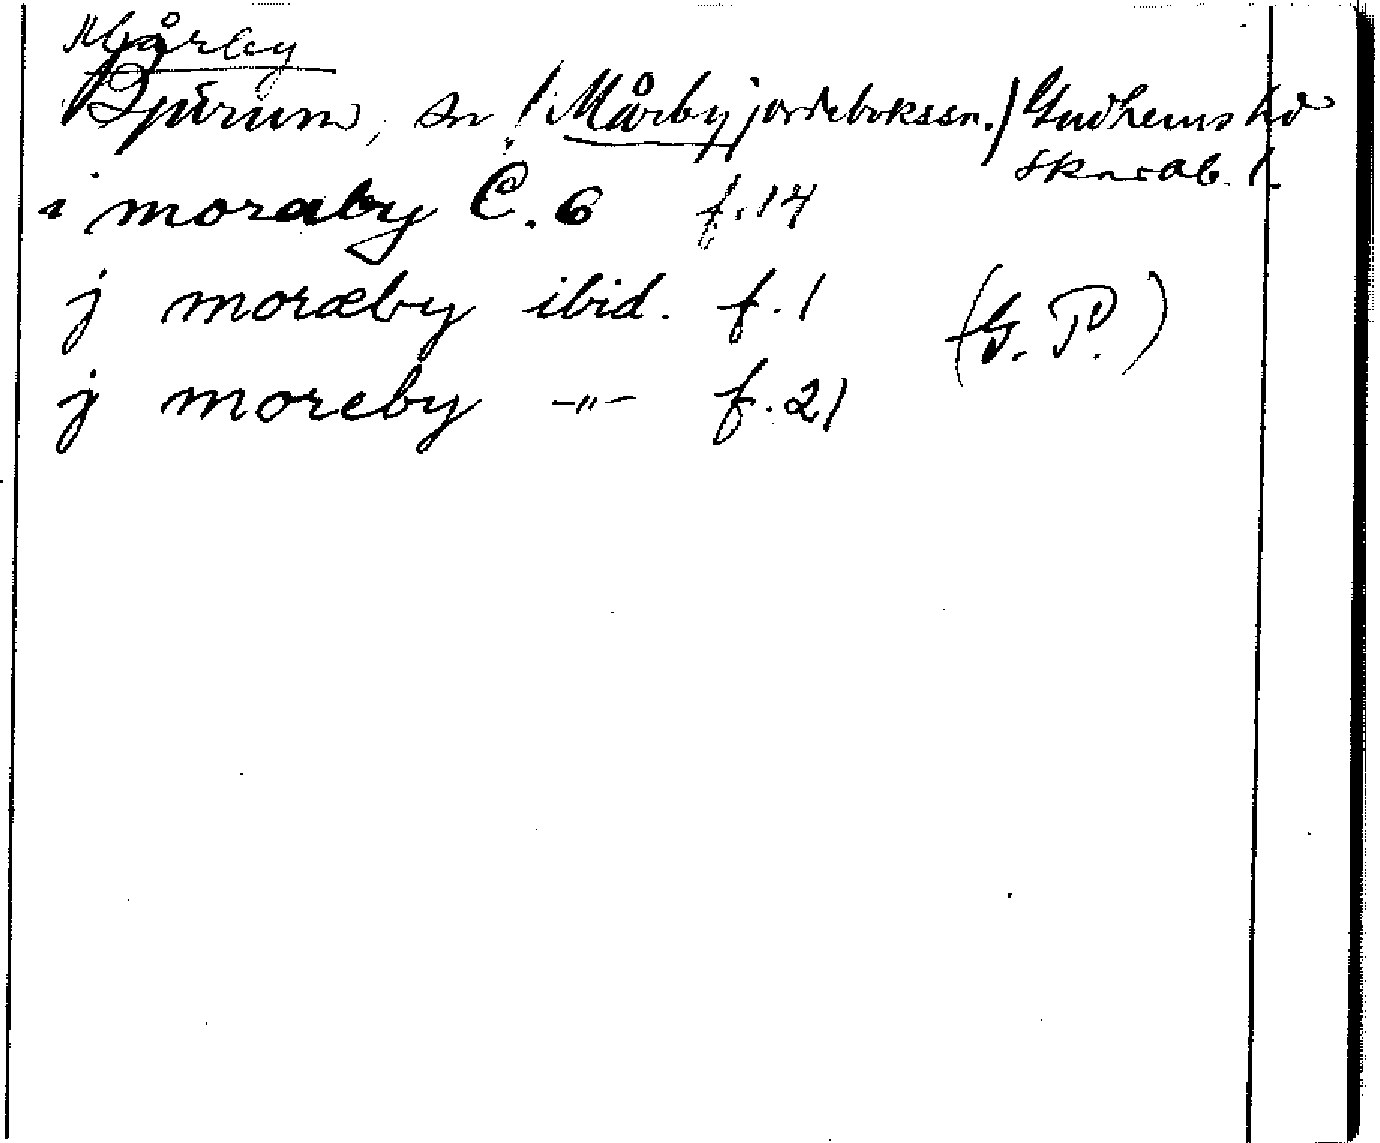 Mårby
Bjurum, sn (Mårby jordebokssn.) Gudhems hd
Skarab. l.
i moraby C. 6 f. 14
j moræby ibid. f. 1 (G. P.)
j moreby -"- f. 21